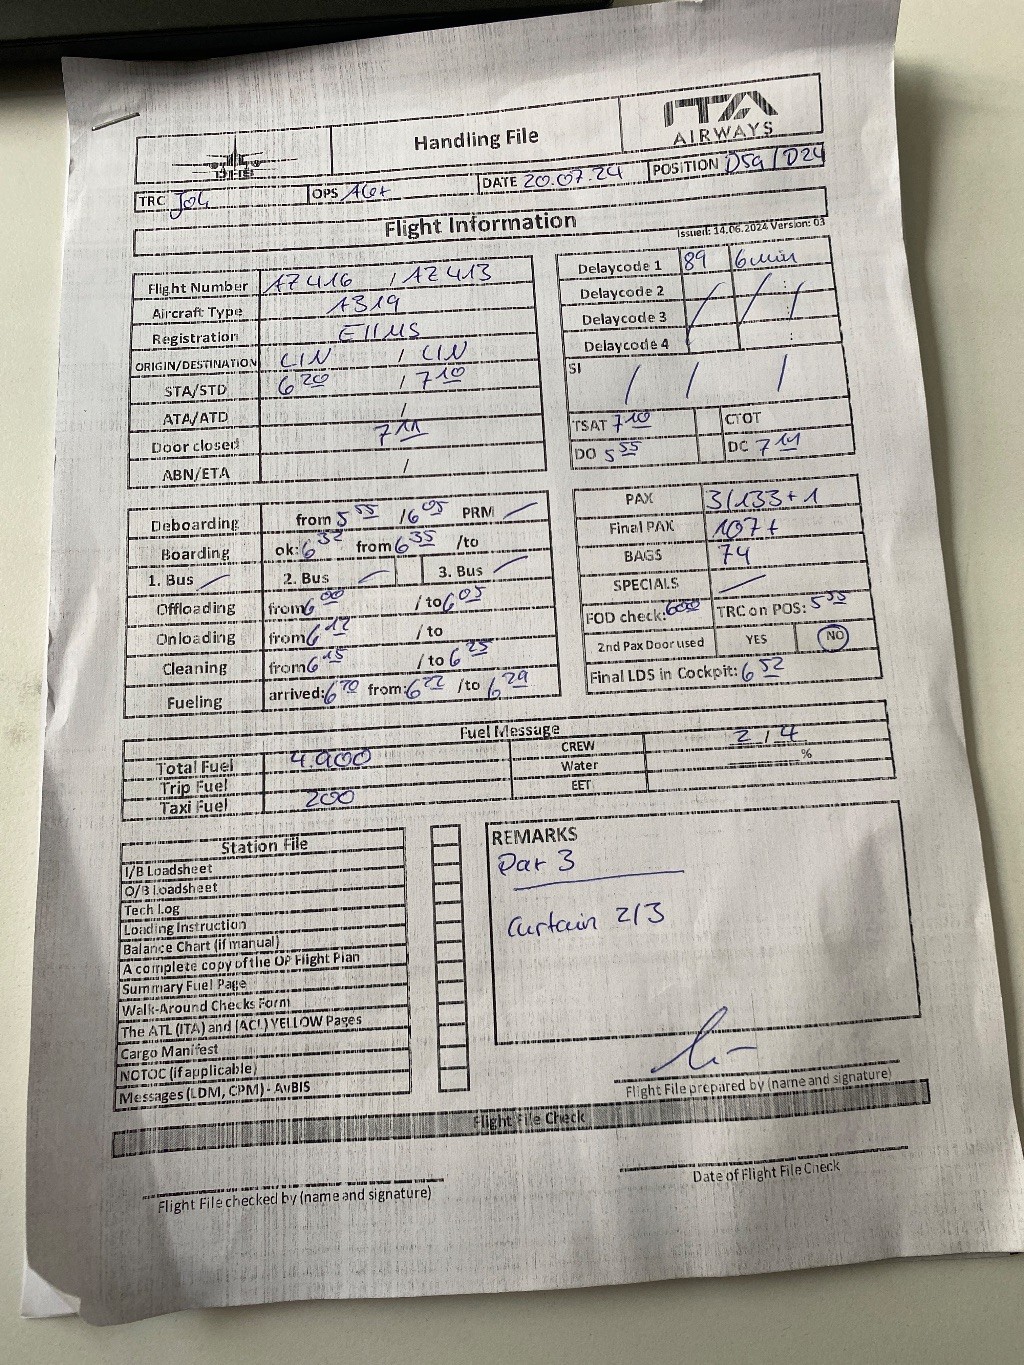 Handling File
ITA
AIRWAYS
TRC OPS Alex DATE 20.07.24 POSITION D5a / D24
Flight Information
Issued: 14.06.2024 Version: 03
Flight Number AZ416 / AZ413
Aircraft Type A319
Registration
ORIGIN/DESTINATION LIN / LIN
STA/STD 6 20 / 7 10
ATA/ATD /
Door closed 7 11
ABN/ETA /
Delaycode 1 89 6min
Delaycode 2 :
Delaycode 3 :
Delaycode 4 :
SI / / /
TSAT 7 10 CTOT
DO 5 55 DC 7 11
Deboarding from 5 55 / 6 05 PRM
Boarding ok: 6 32 from 6 35 /to
1. Bus 2. Bus 3. Bus
Offloading from 6 00 / to 6 05
Onloading from 6 12 / to
Cleaning from 6 15 / to 6 25
Fueling arrived: 6 20 from: 6 22 /to 6 29
PAX 3/133+1
Final PAX 107+
BAGS 74
SPECIALS
FOD check: TRC on POS:
2nd Pax Door used YES NO
Final LDS in Cockpit: 6 52
Fuel Message
Total Fuel 4.900 CREW 2 / 4
Trip Fuel Water %
Taxi Fuel 200 EET
Station File
I/B Loadsheet
O/B Loadsheet
Tech Log
Loading Instruction
Balance Chart (if manual)
A complete copy of the OP Flight Plan
Summary Fuel Page
Walk-Around Checks Form
The ATL (ITA) and (ACL) YELLOW Pages
Cargo Manifest
NOTOC (if applicable)
Messages (LDM, CPM) - AvBIS
REMARKS
Par 3
Curtain 2/3
Flight File prepared by (name and signature)
Flight File Check
Flight File checked by (name and signature)
Date of Flight File Check